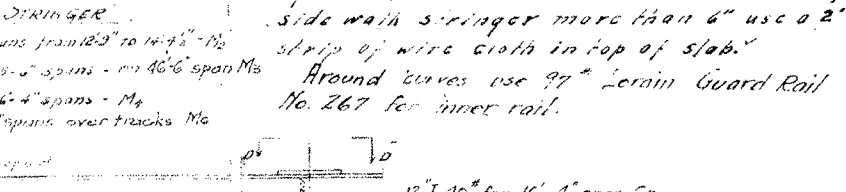 STRINGER
ans from 12'-9" to 14'-4½" - M2
spans - on 46'-6" span M3
6'-4" spans - M4
spans over tracks M6
side walk stringer more than 6" use a 2"
strip of wire cloth in top of slab.
Around curves use 97# Lorain Guard Rail
No. 267 for inner rail.